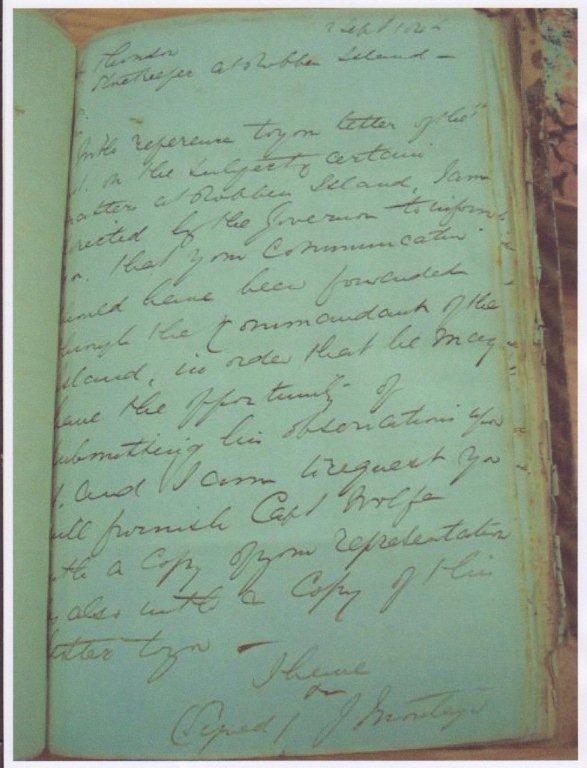 Sept 184
Storekeeper at Robben Island —
With reference to your letter of the
on the subject of certain
matters at Robben Island, I am
rected by the Governor to inform
that your communication
ould have been forwarded
rough the Commandant of the
sland, in order that he may
ave the opportunity of
ubmitting his observations upon
and I am to request you
ill furnish Capt Wolfe
ith a Copy of your representation
also with a Copy of this
etter to you —
I have
(Signed) J Montagu